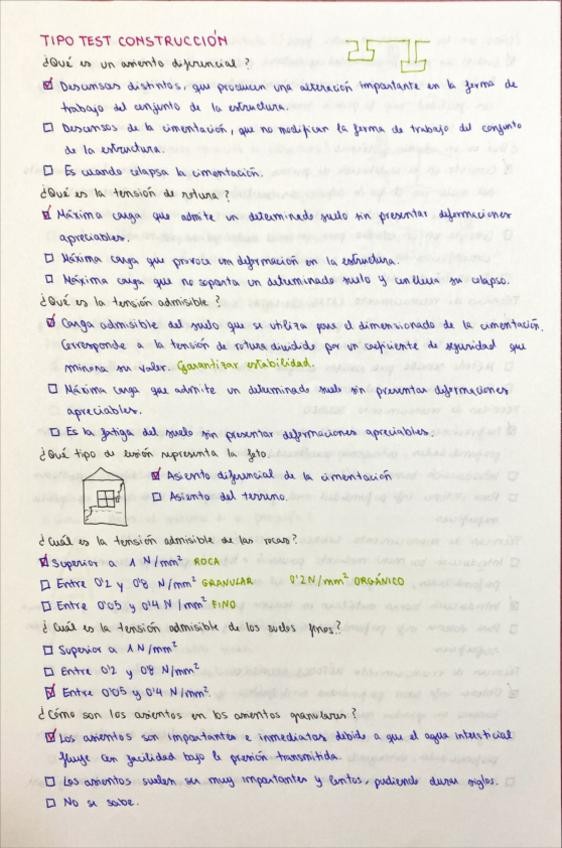 TIPO TEST CONSTRUCCIÓN
¿Qué es un asiento diferencial?
Descansos distintos, que producen una alteración importante en la forma de
trabajo del conjunto de la estructura.
Descansos de la cimentación, que no modifican la forma de trabajo del conjunto
de la estructura.
Es cuando colapsa la cimentación.
¿Qué es la tensión de rotura?
Máxima carga que admite un determinado suelo sin presentar deformaciones
apreciables.
Máxima carga que provoca una deformación en la estructura.
Máxima carga que no soporta un determinado suelo y conlleva su colapso.
¿Qué es la tensión admisible?
Carga admisible del suelo que se utiliza para el dimensionado de la cimentación.
Corresponde a la tensión de rotura dividida por un coeficiente de seguridad que
minora su valor. Garantizar estabilidad.
Máxima carga que admite un determinado suelo sin presentar deformaciones
apreciables.
Es la fatiga del suelo sin presentar deformaciones apreciables.
¿Qué tipo de lesión representa la foto.
Asiento diferencial de la cimentación
Asiento del terreno.
¿Cuál es la tensión admisible de las rocas?
Superior a 1 N/mm² ROCA
Entre 0'2 y 0'8 N/mm² GRANULAR 0'2 N/mm² ORGÁNICO
Entre 0'05 y 0'4 N/mm² FINO
¿Cuál es la tensión admisible de los suelos finos?
Superior a 1 N/mm²
Entre 0'2 y 0'8 N/mm²
Entre 0'05 y 0'4 N/mm²
¿Cómo son los asientos en los asientos granulares?
Los asientos son importantes e inmediatos, debido a que el agua intersticial
fluye con facilidad bajo la presión transmitida.
Los asientos suelen ser muy importantes y lentos, pudiendo durar siglos.
No se sabe.